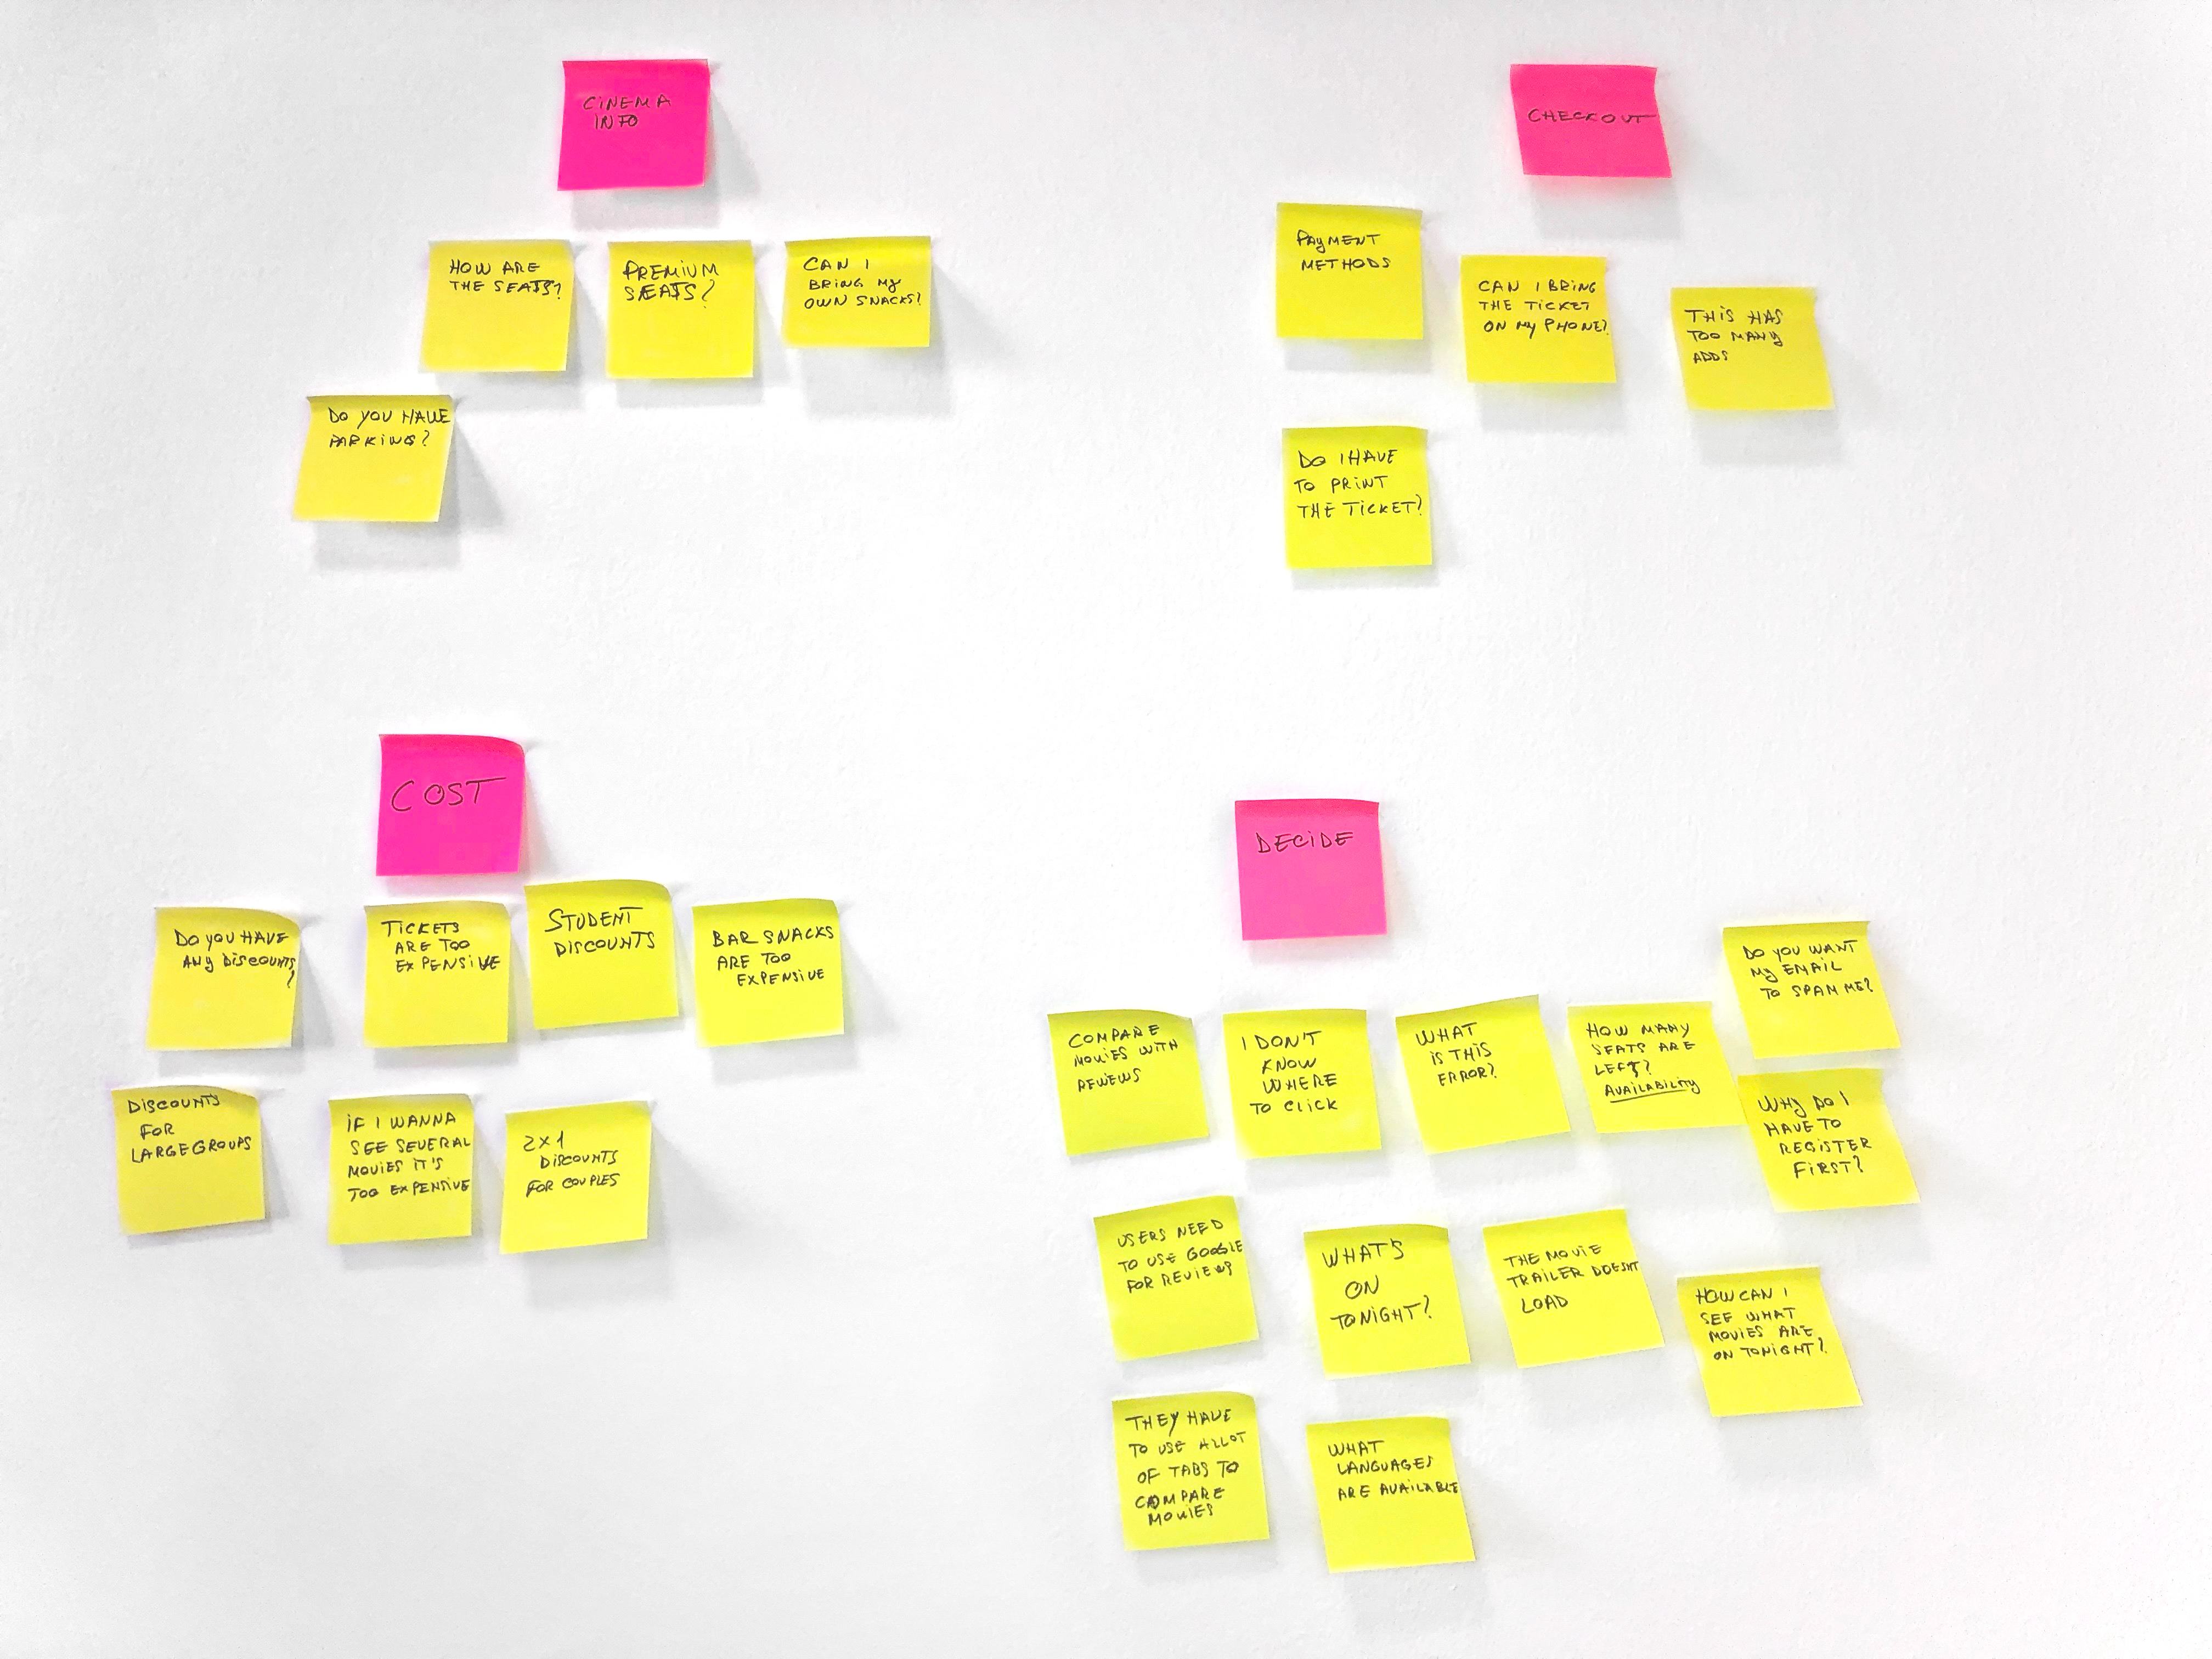 CINEMA
INFO
HOW ARE
THE SEATS?
PREMIUM
SEATS?
CAN I
BRING MY
OWN SNACKS?
DO YOU HAVE
PARKING?
CHECKOUT
PAYMENT
METHODS
CAN I BRING
THE TICKET
ON MY PHONE?
THIS HAS
TOO MANY
ADDS
DO I HAVE
TO PRINT
THE TICKET?
COST
DO YOU HAVE
ANY DISCOUNTS
?
TICKETS
ARE TOO
EXPENSIVE
STUDENT
DISCOUNTS
BAR SNACKS
ARE TOO
EXPENSIVE
DISCOUNTS
FOR
LARGE GROUPS
IF I WANNA
SEE SEVERAL
MOVIES IT'S
TOO EXPENSIVE
2X1
DISCOUNTS
FOR COUPLES
DECIDE
COMPARE
MOVIES WITH
REVIEWS
I DON'T
KNOW
WHERE
TO CLICK
WHAT
IS THIS
ERROR?
HOW MANY
SEATS ARE
LEFT?
AVAILABILITY
DO YOU WANT
MY EMAIL
TO SPAM ME?
WHY DO I
HAVE TO
REGISTER
FIRST?
USERS NEED
TO USE GOOGLE
FOR REVIEWS
WHAT'S
ON
TONIGHT?
THE MOVIE
TRAILER DOESNT
LOAD
HOW CAN I
SEE WHAT
MOVIES ARE
ON TONIGHT?
THEY HAVE
TO USE ALLOT
OF TABS TO
COMPARE
MOVIES
WHAT
LANGUAGES
ARE AVAILABLE